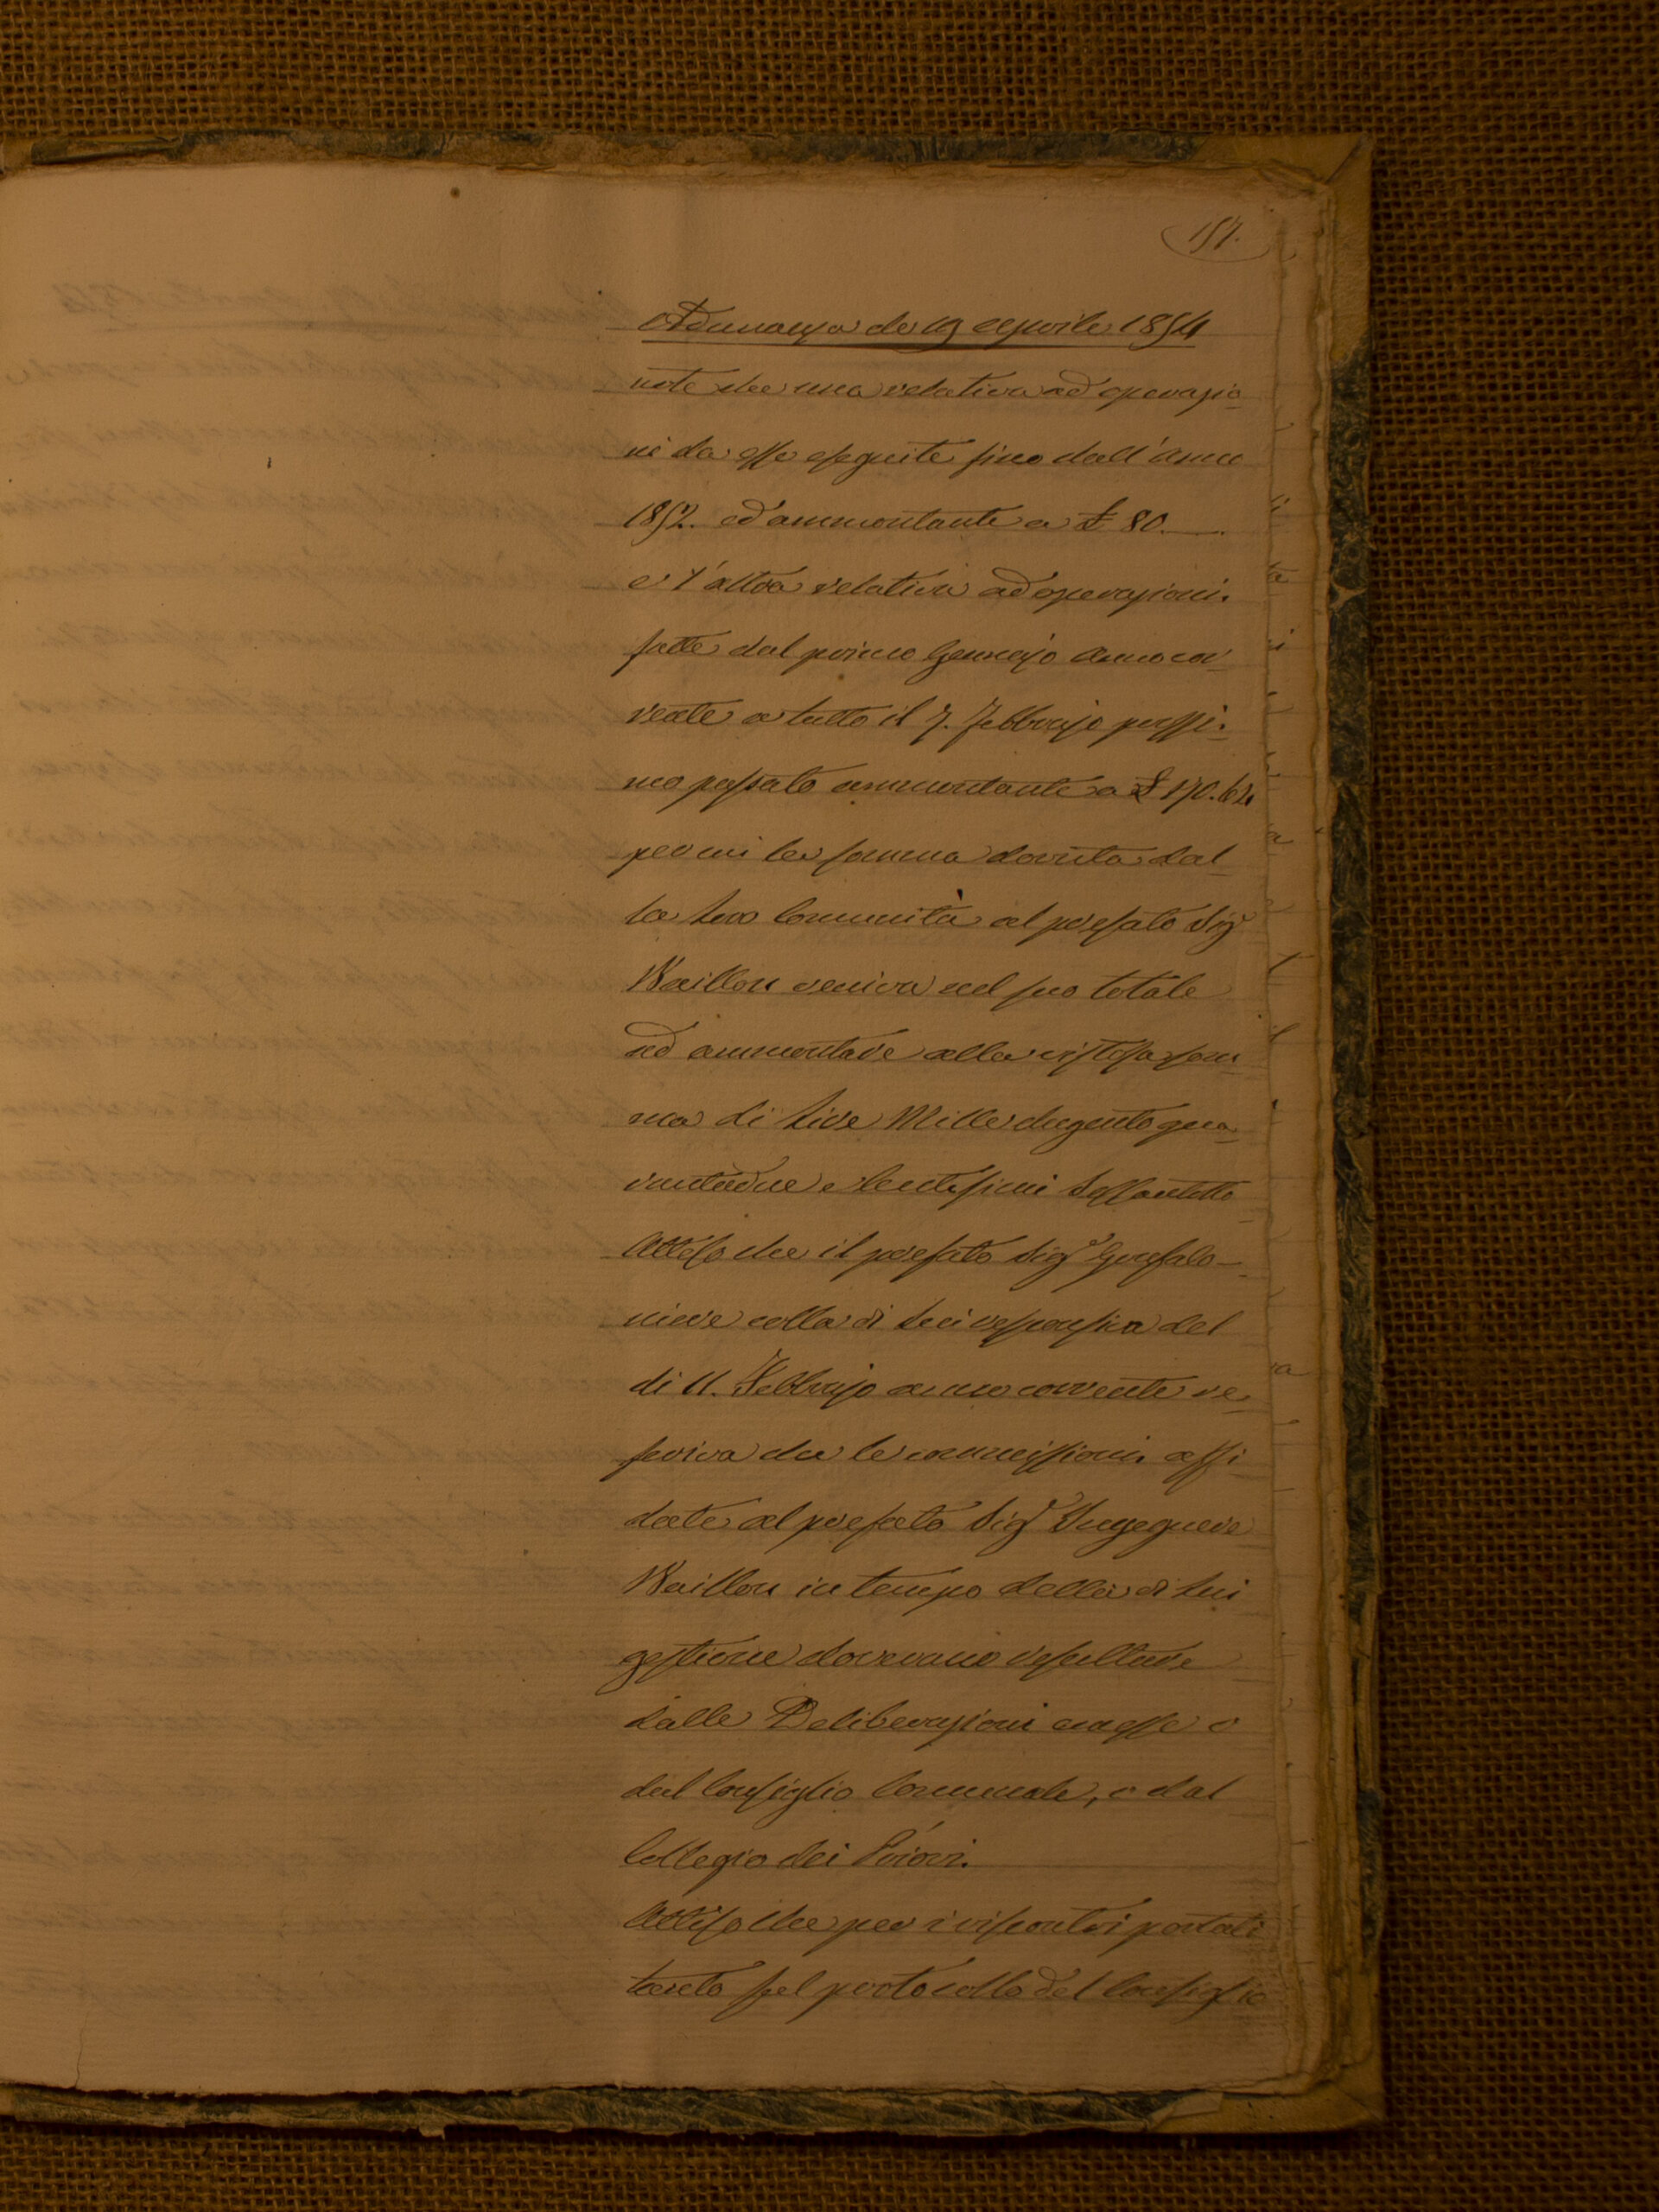 157.
Adunanza de 19 Aprile 1854
note che una relativa ad operazio
ni da esse eseguite fino dall'anno
1852. ed ammontante a £ 80.
e l'altra relativa ad operazioni
fatte dal primo Gennajo anno cor
rente a tutto il 7. Febbrajo prossi
mo passato ammontante a £ 170.64
per cui la somma dovuta dal
la loro Comunità al prefato Sig.r
Baillou veniva nel suo totale
ad ammontare alla vistosa som
ma di Lire Mille dugento qua
rantadue e Centesimi Sessantotto
Atteso che il prefato Sig.r Gonfalo-
niere colla di lui responsiva del
dì 11. Febbrajo anno corrente re
feriva che le commissioni affi
date al prefato Sig.r Ingegnere
Baillou in tempo della di lui
gestione dovevano resultare
dalle Deliberazioni emesse o
dal Consiglio Comunale, o dal
Collegio dei Priori.
Atteso che per i riscontri portati
tanto sul protocollo del Consiglio